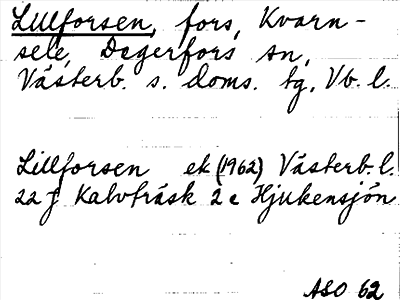 Lillforsen, fors, Kvarn-
sele, Degerfors sn,
Västerb. s. doms. tg, Vb. l.
Lillforsen ek (1962) Västerb. l.
22 J Kalvträsk 2 e Hjukensjön
ASO 62